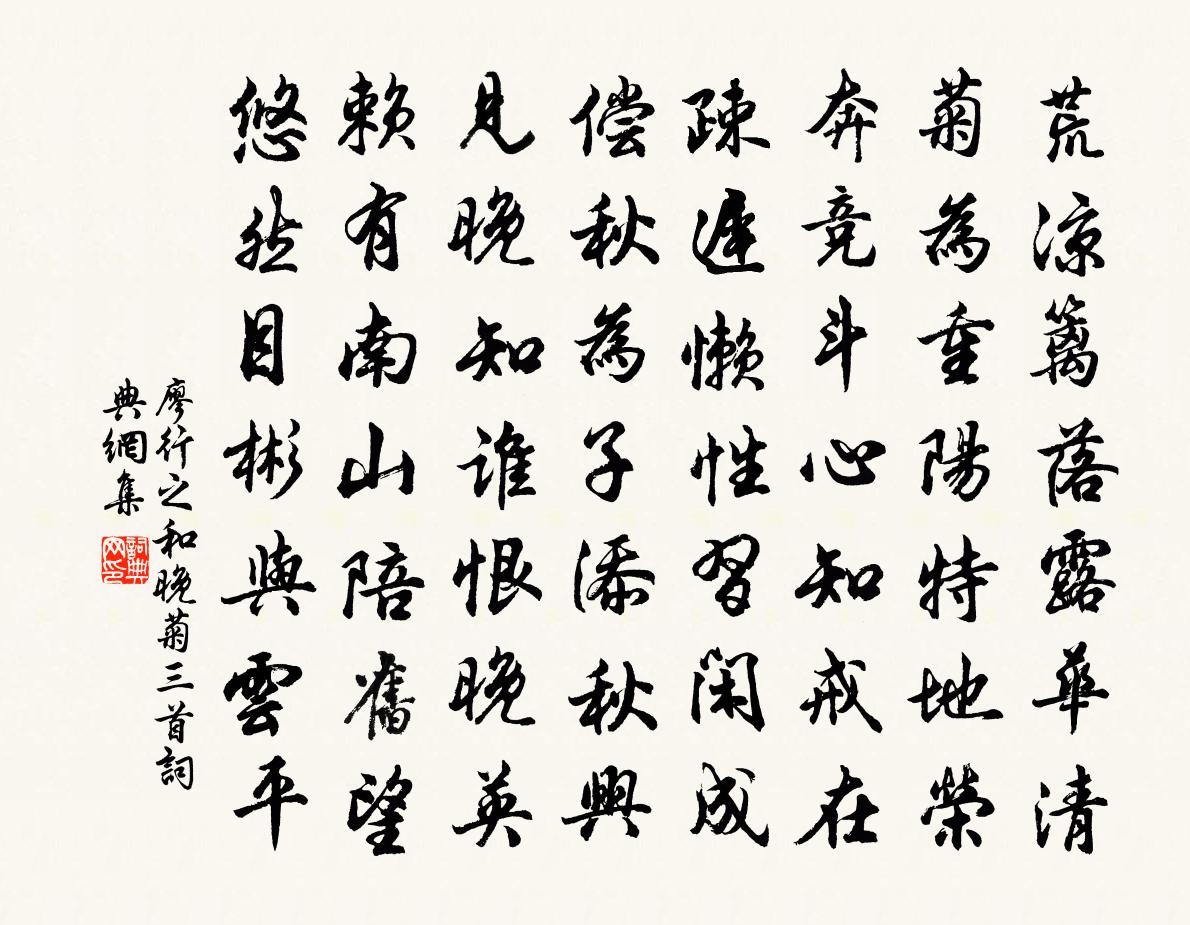 荒涼籬落露華清
菊為重陽特地榮
奔竞斗心知戒在
疎遲懶性習闲成
偿秋為子添秋興
見晚知誰恨晚英
賴有南山陪舊望
悠然目彬與雲平
廖行之和晚菊三首詞
典網集
詞典
网印